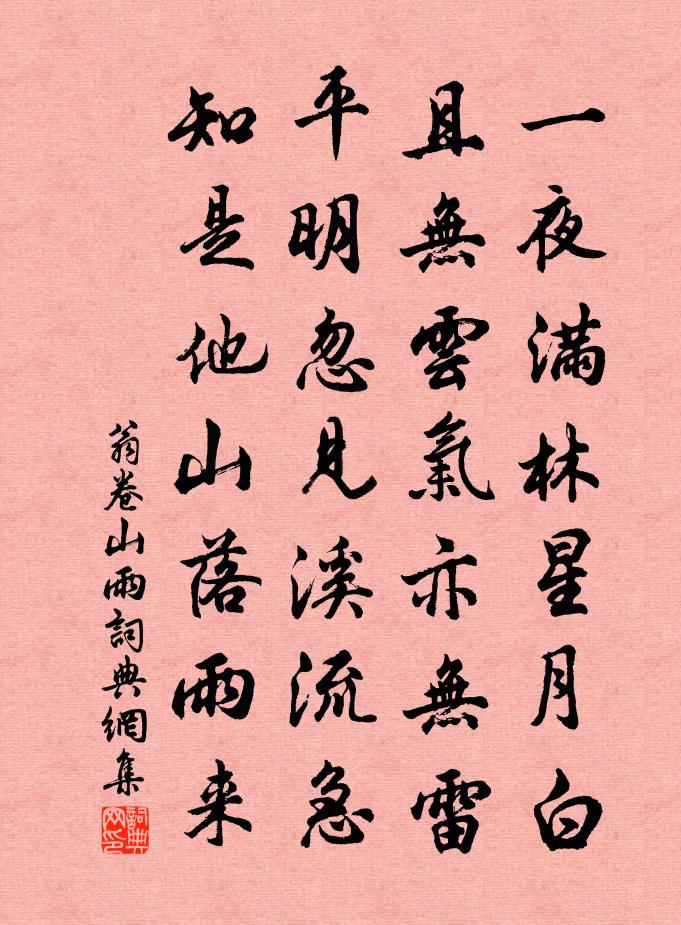 一夜滿林星月白
且無雲氣亦無雷
平明忽見溪流急
知是他山落雨来
翁卷山雨詞典網集
詞典网印